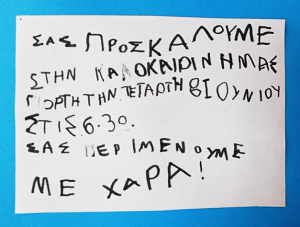 ΣΑΣ ΠΡΟΣΚΑΛΟΥΜΕ
ΣΤΗΝ ΚΑΛΟΚΑΙΡΙΝΗ ΜΑΣ
ΓΙΟΡΤΗ ΤΗΝ ΤΕΤΑΡΤΗ 8 ΙΟΥΝΙΟΥ
ΣΤΙΣ 6.30.
ΣΑΣ ΠΕΡΙΜΕΝΟΥΜΕ
ΜΕ ΧΑΡΑ!